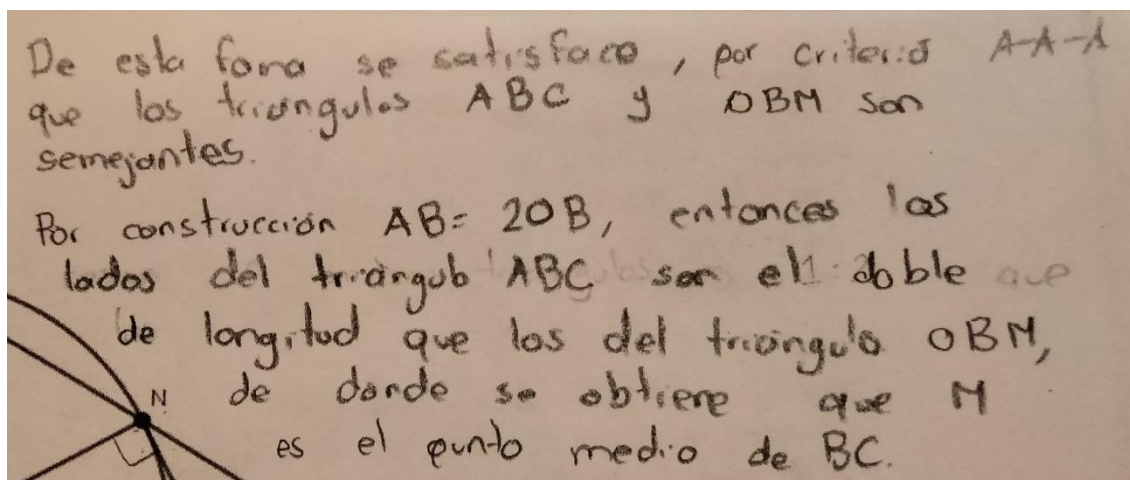 De esta forma se satisface, por criterio A-A-A
que los triángulos ABC y OBM son
semejantes.
Por construcción AB = 2OB, entonces los
lados del triángulo ABC son el doble
de longitud que los del triángulo OBM,
N de donde se obtiene que M
es el punto medio de BC.